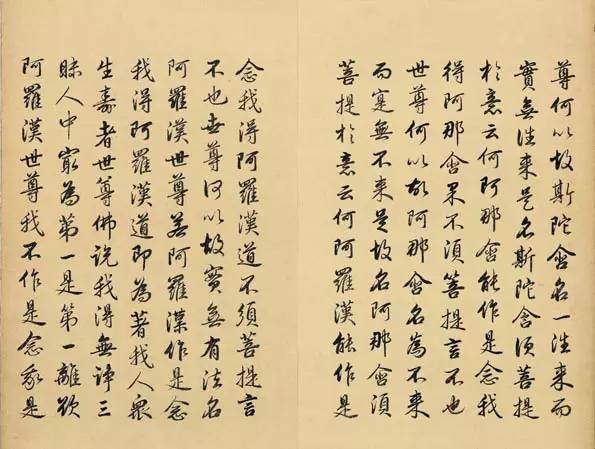 尊何以故斯陀含名一往來而
實無往來是名斯陀含須菩提
於意云何阿那含能作是念我
得阿那含果不須菩提言不也
世尊何以故阿那含名為不來
而寔無不來是故名阿那含須
菩提於意云何阿羅漢能作是
念我得阿羅漢道不須菩提言
不也世尊何以故實無有法名
阿羅漢世尊若阿羅漢作是念
我得阿羅漢道即為著我人眾
生壽者世尊佛說我得無諍三
昧人中最為第一是第一離欲
阿羅漢世尊我不作是念我是